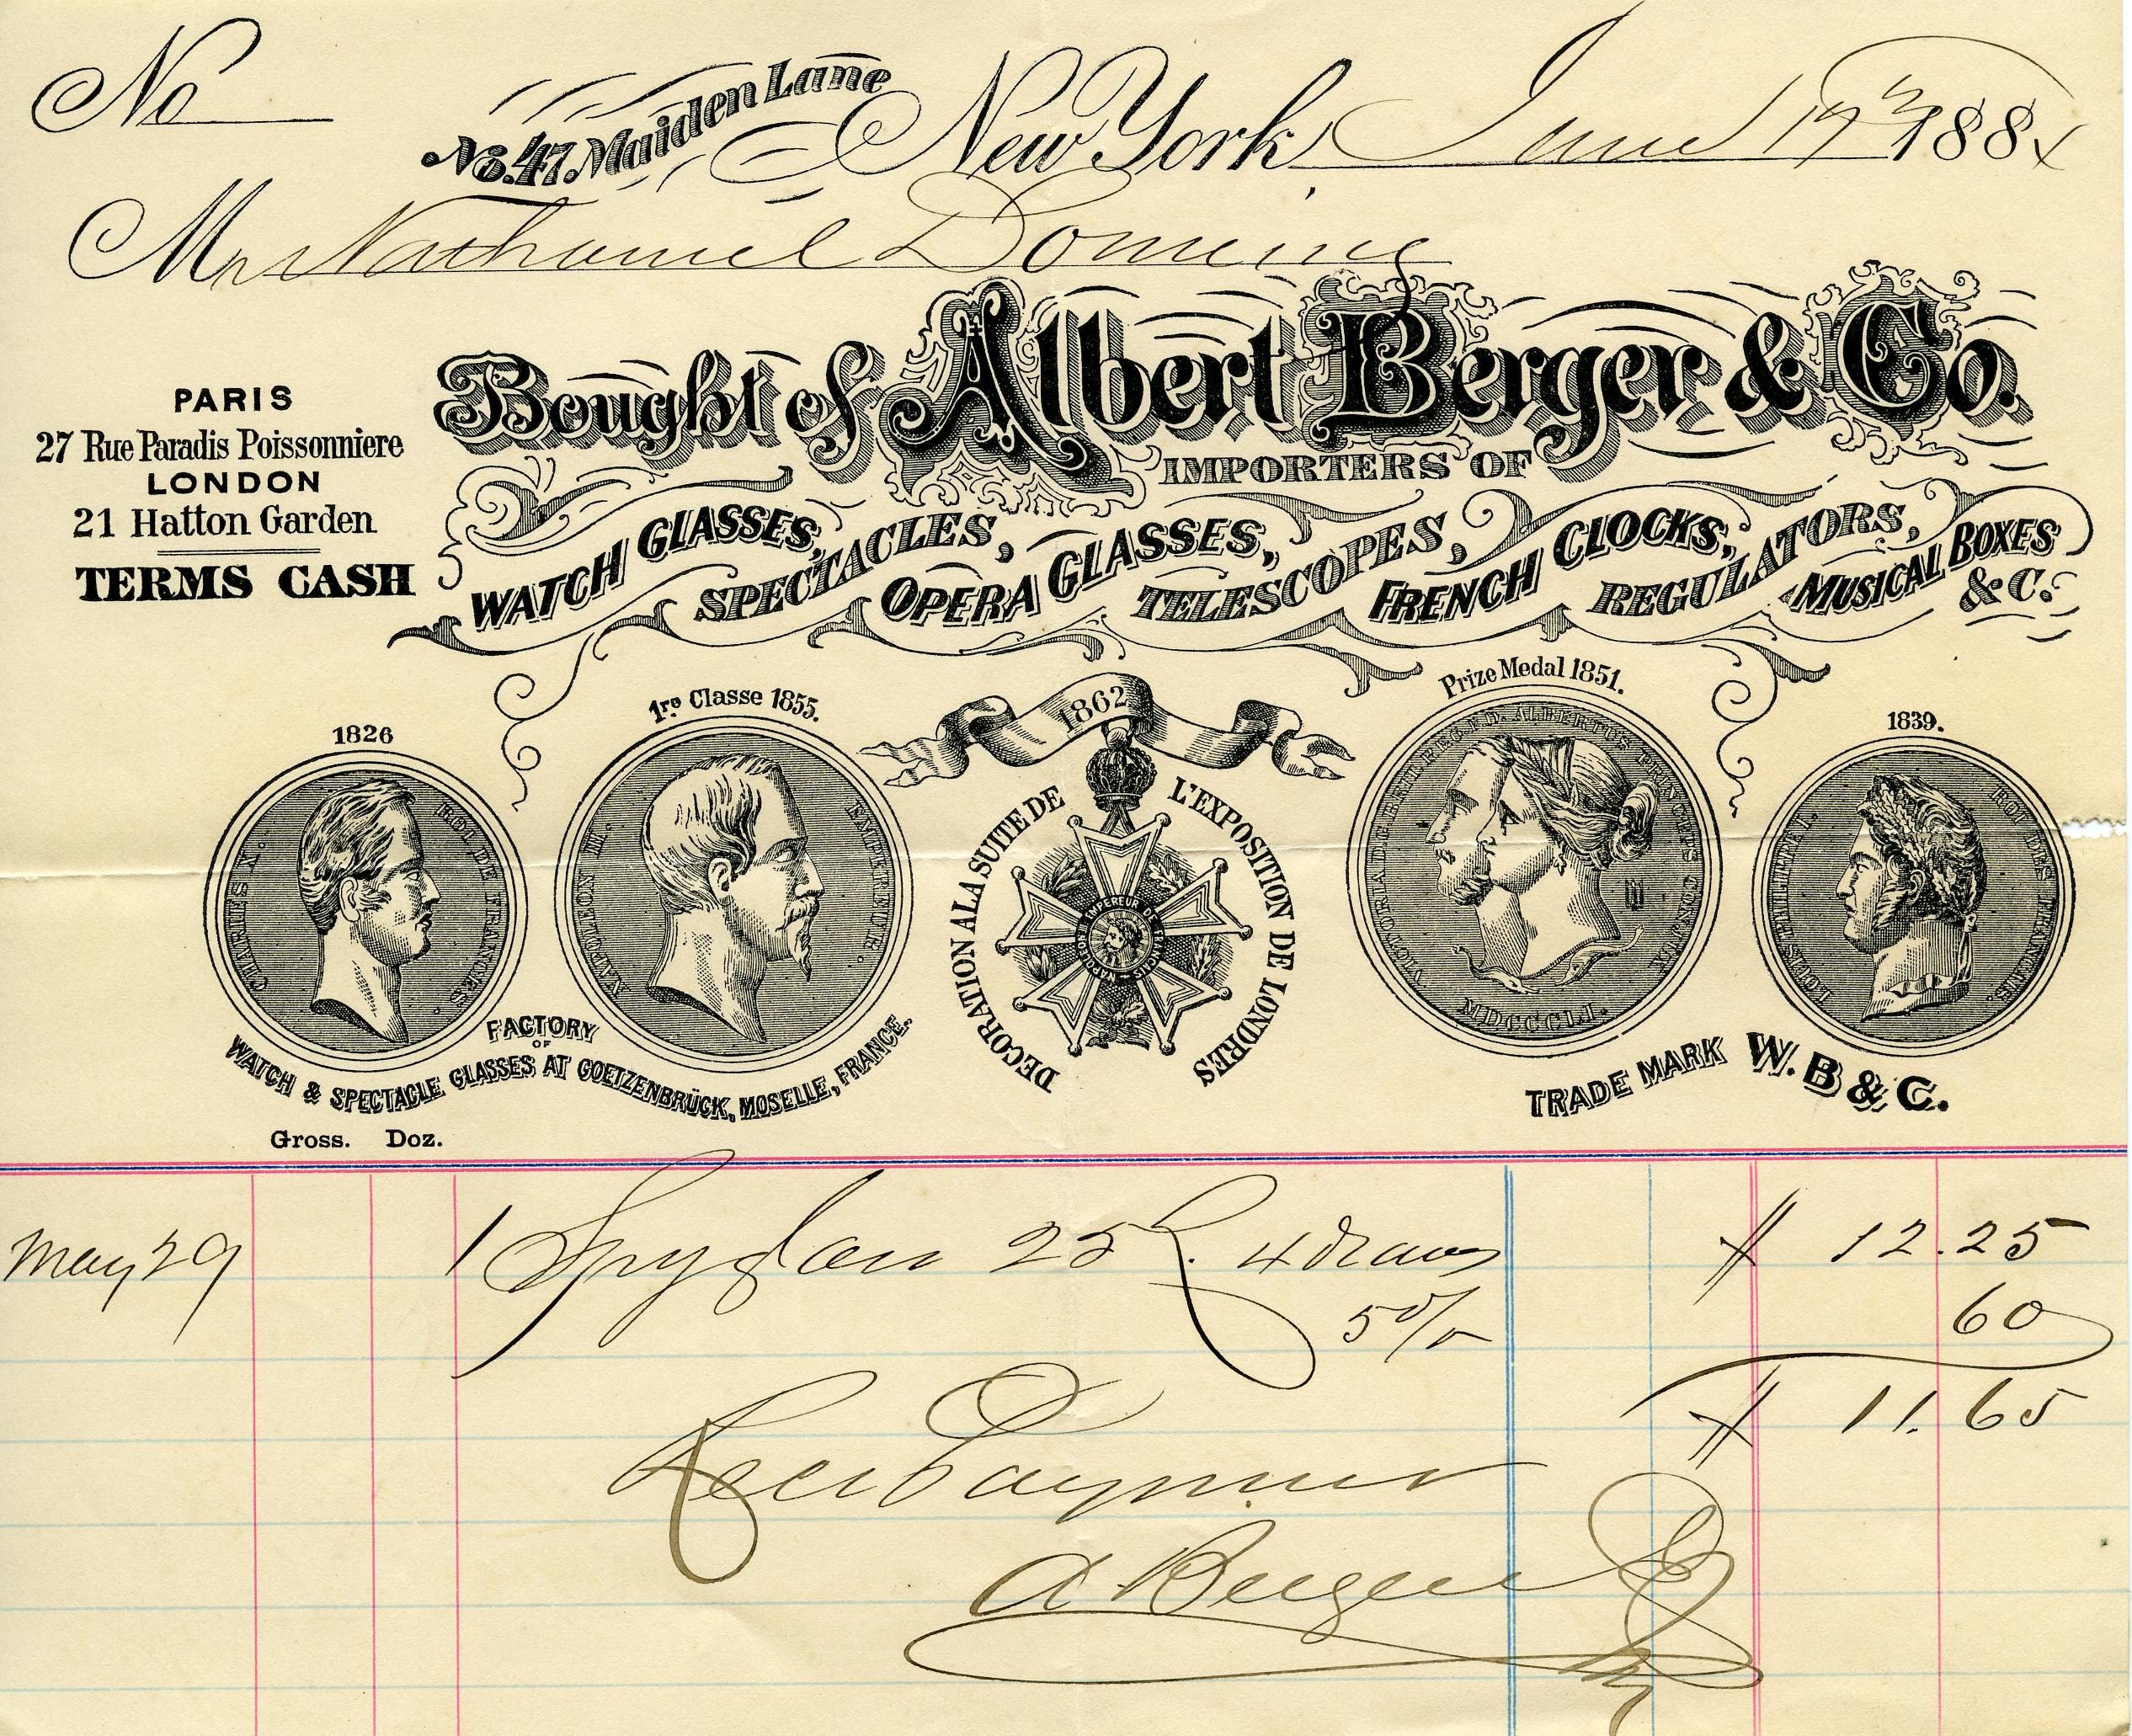 No
No. 47. Maiden Lane
New York, June 17th 1884
Mr Nathaniel Domeinig
PARIS
27 Rue Paradis Poissonniere
LONDON
21 Hatton Garden
TERMS CASH
Bought of Albert Berger & Co.
IMPORTERS OF
WATCH GLASSES, SPECTACLES, OPERA GLASSES, TELESCOPES, FRENCH CLOCKS, REGULATORS, MUSICAL BOXES &C.
1826
CHARLES X. ROI DE FRANCE
1re Classe 1855.
NAPOLEON III. EMPEREUR.
1862
DECORATION A LA SUITE DE L'EXPOSITION DE LONDRES
NAPOLEON EMPEREUR DES FRANÇAIS
Prize Medal 1851.
VICTORIA D.G. BRIT. REG. F.D. ALBERTUS PRINCEPS CONJUX
MDCCCLI.
1839.
LOUIS PHILIPPE I. ROI DES FRANÇAIS.
FACTORY
OF
WATCH & SPECTACLE GLASSES AT GOETZENBRÜCK, MOSELLE, FRANCE.
TRADE MARK W. B & C.
Gross. Doz.
May 29 1 Spyglass 25 L. 4 draws $ 12.25
5% 60
$ 11.65
Rec Payment
A Berger &